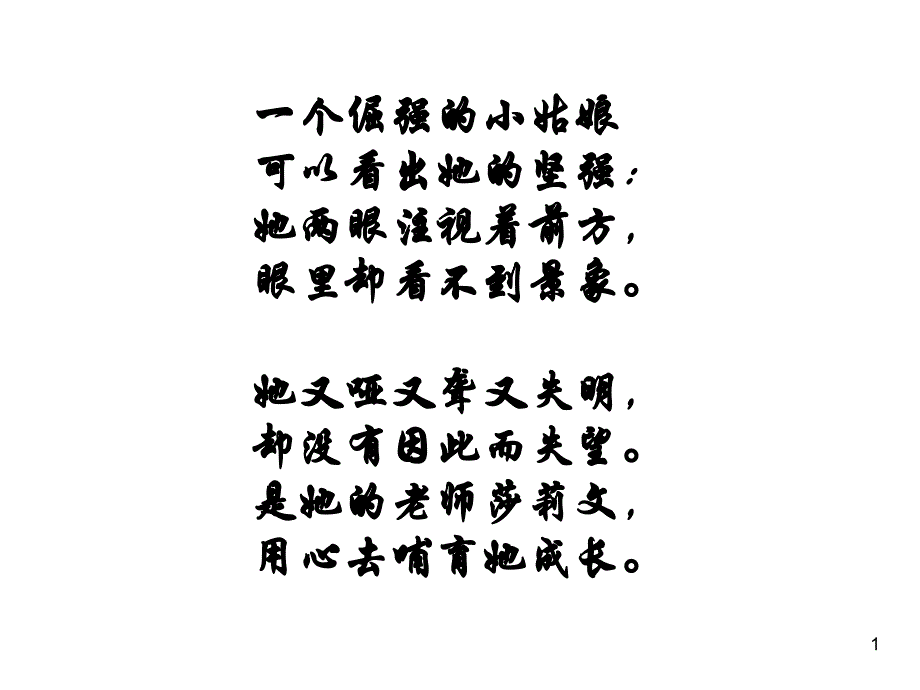 一个倔强的小姑娘
可以看出她的坚强：
她两眼注视着前方，
眼里却看不到景象。
她又哑又聋又失明，
却没有因此而失望。
是她的老师莎莉文，
用心去哺育她成长。
1